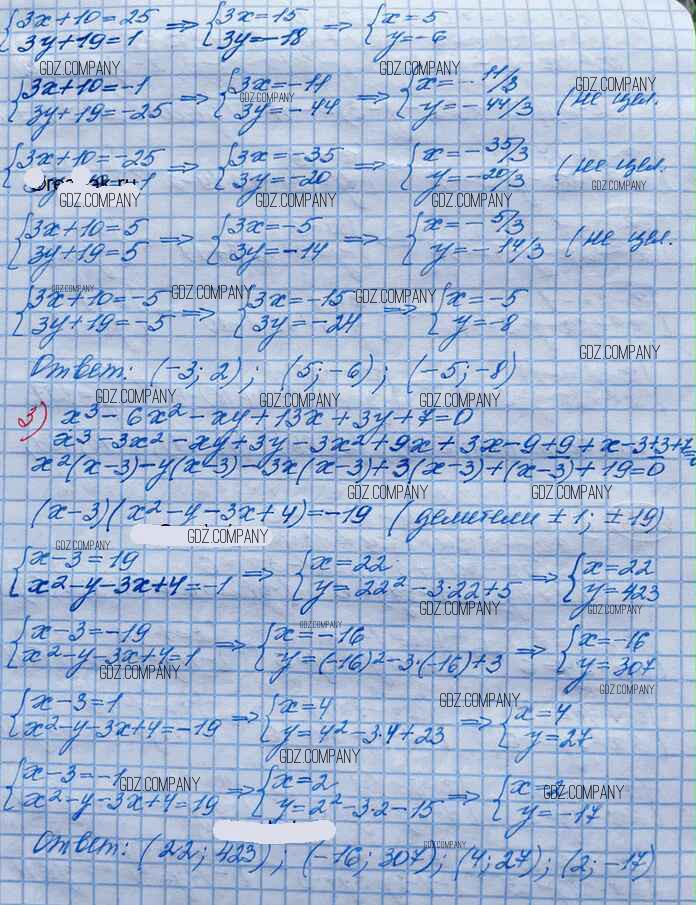 {3x+10=25 3y+19=1 => {3x=15 3y=-18 => {x=5 y=-6
GDZ.COMPANY GDZ.COMPANY
{3x+10=-1 3y+19=-25 => {3x=-11 3y=-44 => {x=-11/3 y=-44/3 (не цел.
GDZ.COMPANY GDZ.COMPANY
{3x+10=-25 => {3x=-35 3y=-20 => {x=-35/3 y=-20/3 (не цел.
GDZ.COMPANY GDZ.COMPANY GDZ.COMPANY GDZ.COMPANY
{3x+10=5 3y+19=5 => {3x=-5 3y=-14 => {x=-5/3 y=-14/3 (не цел.
GDZ.COMPANY GDZ.COMPANY GDZ.COMPANY
{3x+10=-5 3y+19=-5 => {3x=-15 3y=-24 => {x=-5 y=-8
GDZ.COMPANY
Ответ: (-3; 2); (5; -6); (-5; -8)
GDZ.COMPANY GDZ.COMPANY GDZ.COMPANY
3) x³-6x²-xy+13x+3y+7=0
x³-3x²-xy+3y-3x²+9x+3x-9+9+x-3+3+7=
x²(x-3)-y(x-3)-3x(x-3)+3(x-3)+(x-3)+19=0
GDZ.COMPANY GDZ.COMPANY
(x-3)(x²-y-3x+4)=-19 (делители ±1; ±19)
GDZ.COMPANY
GDZ.COMPANY
{x-3=19 x²-y-3x+4=-1 => {x=22 y=22²-3·22+5 => {x=22 y=423
GDZ.COMPANY GDZ.COMPANY
GDZ.COMPANY
{x-3=-19 x²-y-3x+4=1 => {x=-16 y=(-16)²-3·(-16)+3 => {x=-16 y=307
GDZ.COMPANY GDZ.COMPANY
GDZ.COMPANY
{x-3=1 x²-y-3x+4=-19 => {x=4 y=4²-3·4+23 => {x=4 y=27
GDZ.COMPANY
{x-3=-1 x²-y-3x+4=19 => {x=2 y=2²-3·2-15 => {x=2 y=-17
GDZ.COMPANY GDZ.COMPANY
GDZ.COMPANY
Ответ: (22; 423); (-16; 307); (4; 27); (2; -17)